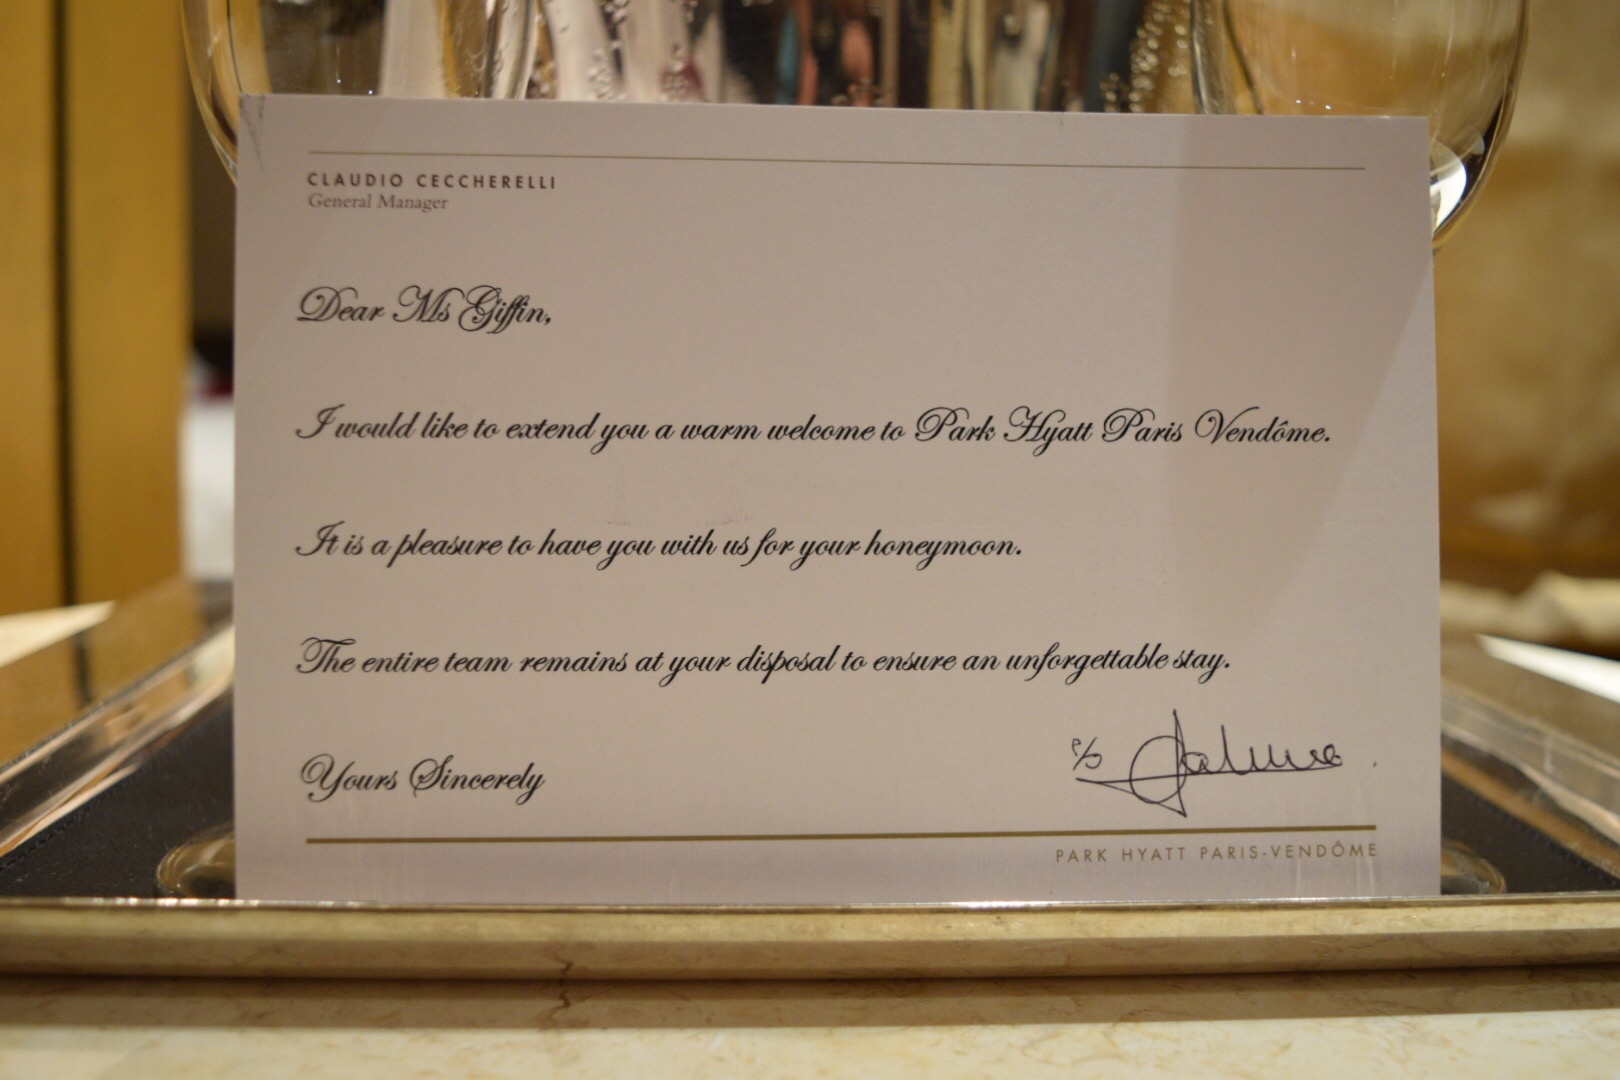 CLAUDIO CECCHERELLI
General Manager
Dear Ms Giffin,
I would like to extend you a warm welcome to Park Hyatt Paris Vendôme.
It is a pleasure to have you with us for your honeymoon.
The entire team remains at your disposal to ensure an unforgettable stay.
Yours Sincerely
PARK HYATT PARIS-VENDÔME